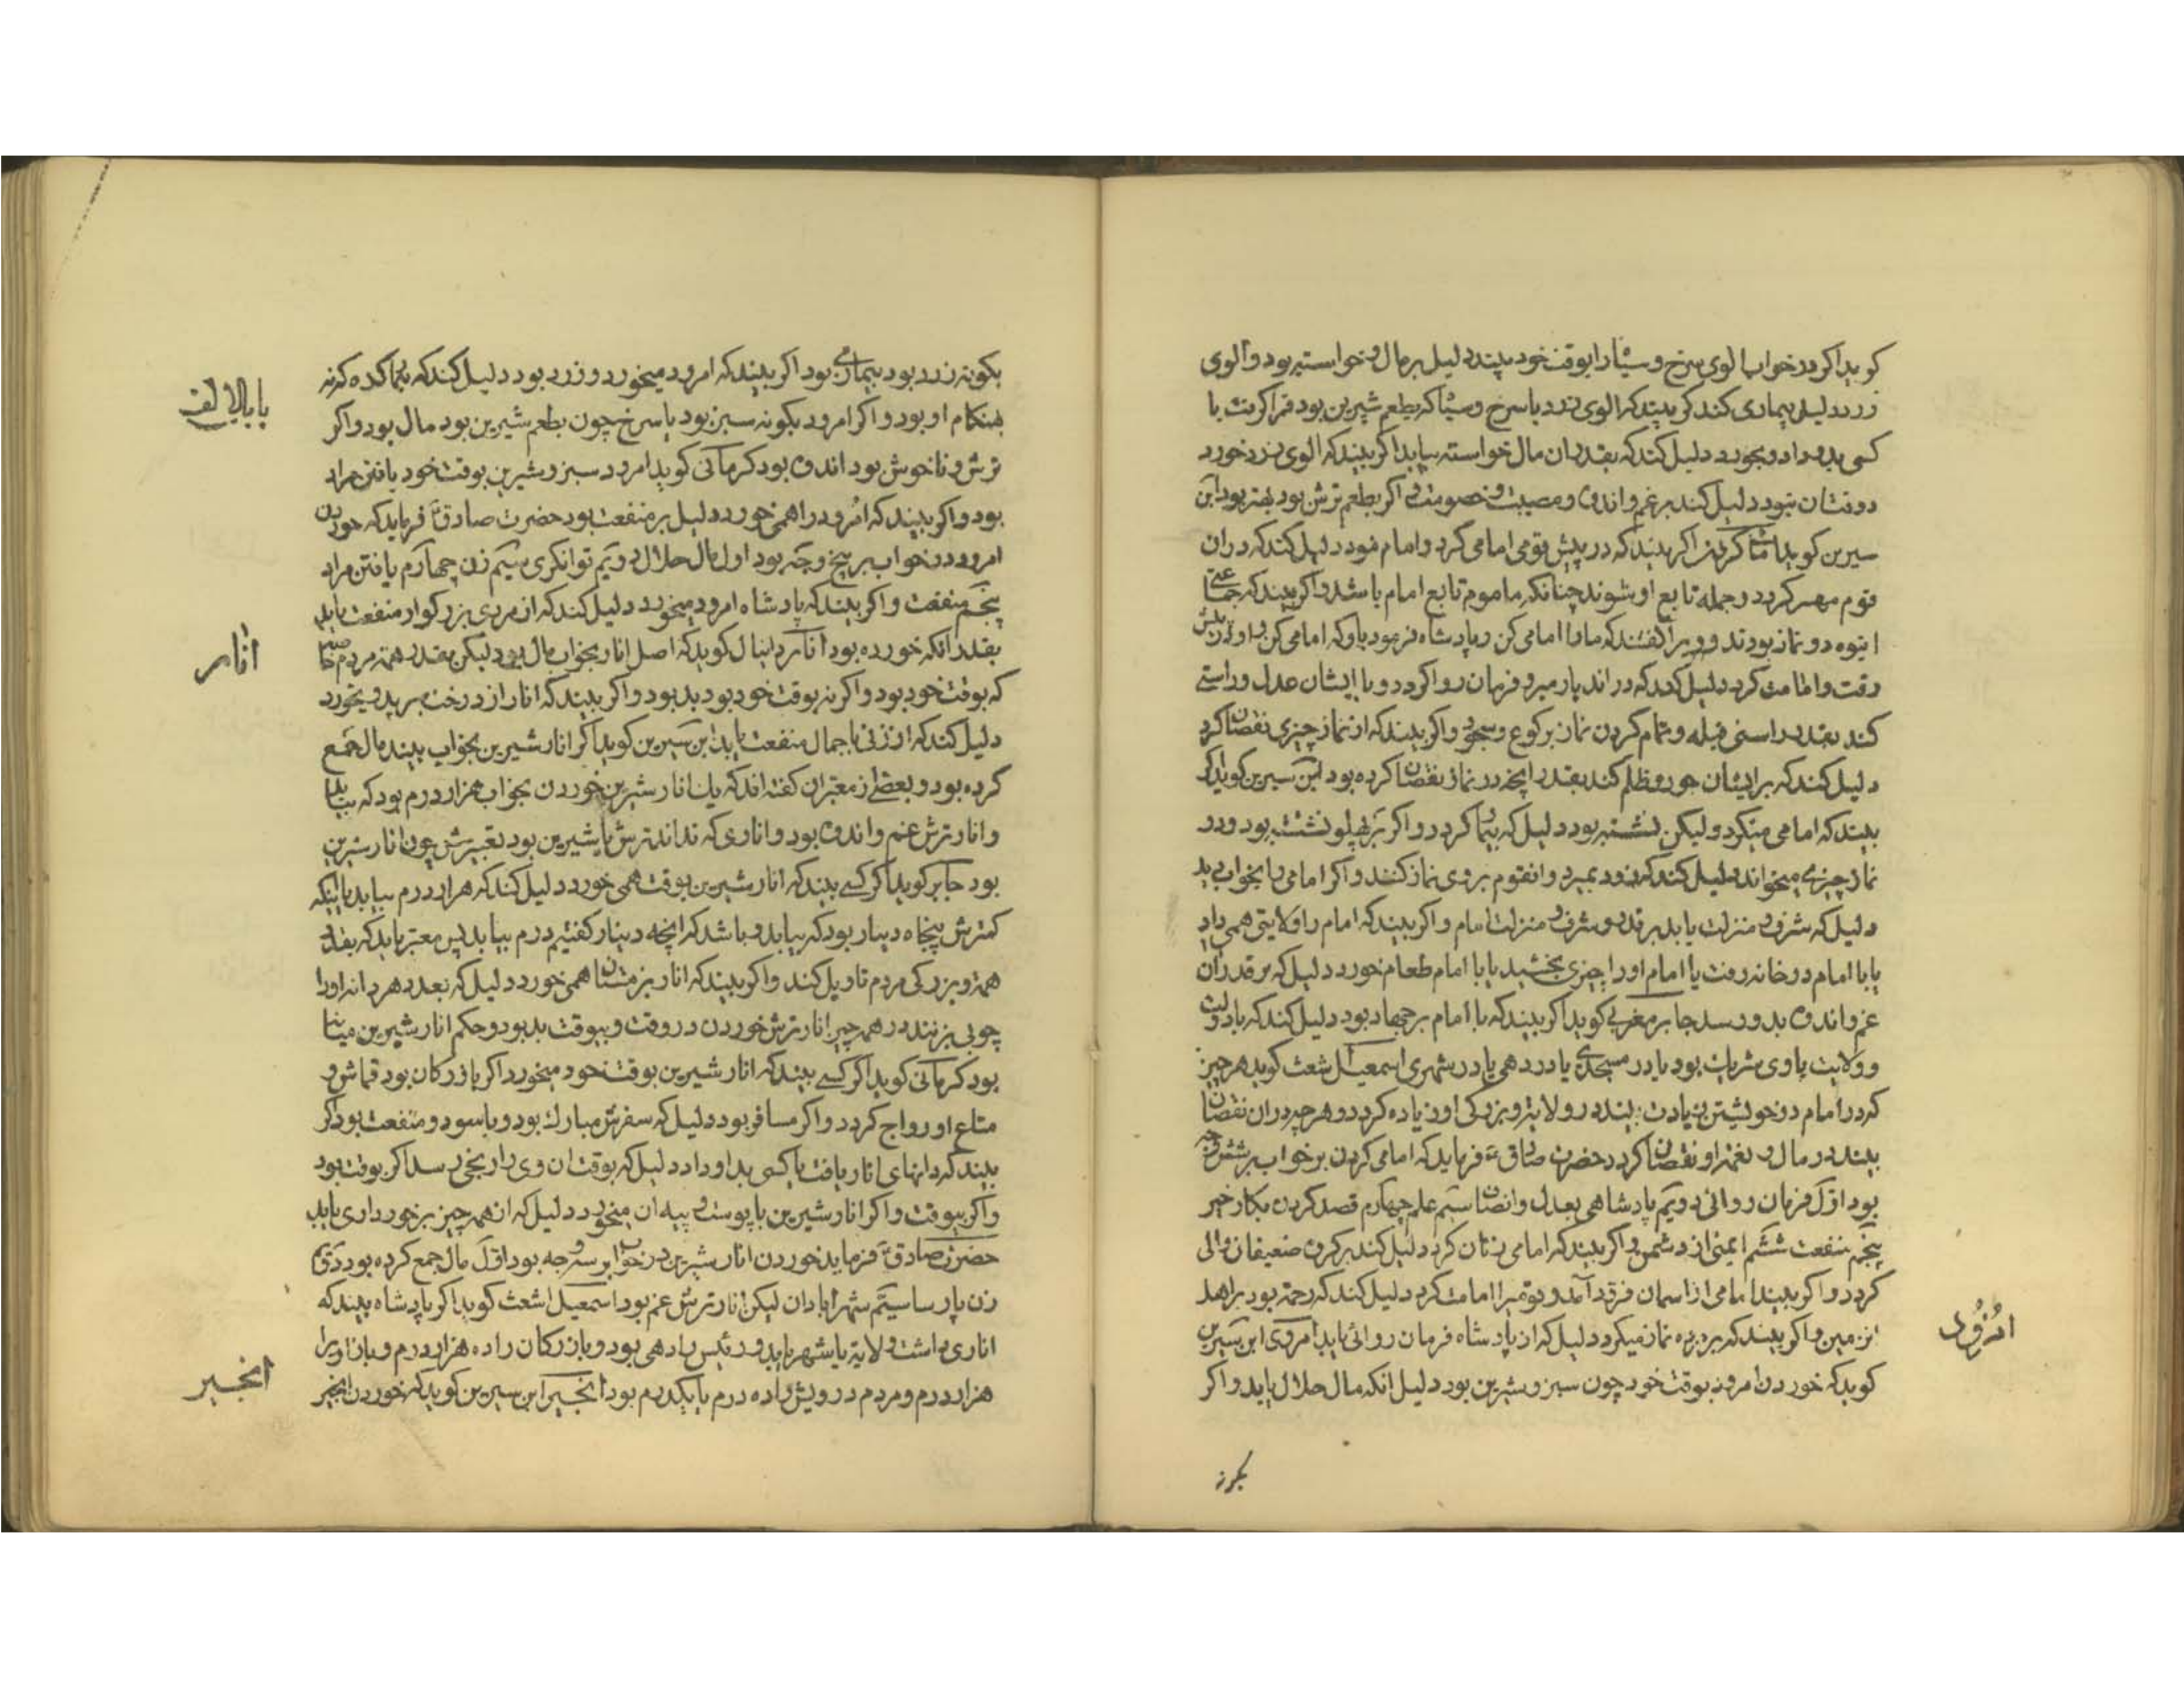 کوید اکر در خواب الوی سرخ و سیاه را بوقت خود بیند دلیل بر مال و خواسته بود و الوی
زرد دلیل بیماری کند کر بیند که الوی زرد یا سرخ و سیاه که بطعم شیرین بود فرا کرفت یا
کسی بدو داد و بخورد دلیل کند که بقدر ان مال خواسته بیابد اکر بیند که الوی زرد خورد
دوقتان نبود دلیل کند بر غم و اندوه و مصیبت و خصومت و اکر بطعم ترش بود بهتر بود ابن
سیرین کوید امامت کردن اکر بیند که در پیش قومی امامی کرد و امام نبود دلیل کند که در ان
قوم مهتر کردد و جمله تابع او شوند چنانکه ماموم تابع امام باشد و اکر بیند که جماعتی
انبوه در نماز بودند و ویرا کفتند که مارا امامی کن و پادشاه فرمود باو که امامی کن و او در پیش
رفت و امامت کرد دلیل کند که در اندیار میر و فرمان روا کردد و با ایشان عدل و راستی
کند بقدر راستی قبله و تمام کردن نماز بر کوع و سجود و اکر بیند که از نماز چیزی نقصان کرد
دلیل کند که بر ایشان جور و ظلم کند بقدر انچه در نماز نقصان کرده بود ابن سیرین کوید اکر
بیند که امامی میکرد و لیکن نشسته بود دلیل که بیمار کردد و اکر بر پهلو نشسته بود و در
نماز چیزی میخواند دلیل کند که زود بمیرد و انقوم بر وی نماز کنند و اکر امامی را بخواب دید
دلیل که شرف و منزلت یابد بر قدر و شرف و منزلت امام و اکر بیند که امام را ولایتی همی داد
یا با امام در خانه رفت یا امام اورا چیزی بخشید یا با امام طعام خورد دلیل که بر قدر ان
غم و اندوه بدو رسد جابر مغربی کوید اکر بیند که با امام بر جهاد بود دلیل کند که با دولت
و ولایت باوی شریک بود یا در مسجدی یا در دهی یا در شهری اسمعیل اشعث کوید هر چیز
که در امام در خویشتن زیادت بیند در ولایت و بزرکی او زیاده کردد و هر چه در ان نقصان
بیند در مال و نعمت او نقصان کردد حضرت صادق ع فرماید که امامی کردن بر خواب بر شش وجه
بود اول فرمان روائی دویم پادشاهی بعدل و انصاف سیم علم چهارم قصد کردن بکار خیر
پنجم منفعت ششم ایمنی از دشمن و اکر بیند که امامی زنان کرد دلیل کند بر کرن ضعیفان والی
کردد و اکر بیند امامی از اسمان فرود آمد و قومیرا امامت کرد دلیل کند که رحمة بود بر اهل
ان زمین و اکر بیند که بر برده نماز میکرد دلیل که از پادشاه فرمان روائی یابد امرود ابن سیرین
کوید که خوردن امرود بوقت خود چون سبز و شیرین بود دلیل انکه مال حلال یابد و اکر
امرود
بکونه
بکونه زرد بود بیماری بود اکر بیند که امرود میخورد و زرد بود دلیل کند که بیمار کدد که نه
بهنکام او بود و اکر امرود بکونه سبز بود یا سرخ چون بطعم شیرین بود مال بود و اکر
ترش و ناخوش بود اندوه بود کرمانی کوید امرود سبز و شیرین بوقت خود یافتن مراد
بود و اکر بیند که امرود را همی خورد دلیل بر منفعت بود حضرت صادق ع فرماید که خوردن
امرود در خواب بر پنج وجه بود اول مال حلال دویم توانکری سیم زن چهارم یافتن مراد
پنجم منفعت و اکر بیند که پادشاه امرود میخورد دلیل کند که از مردی بزرکوار منفعت یابد
بقدر انکه خورده بود انار دانیال کوید که اصل انار بخواب مال بود لیکن بقدر همت مردم خاصه
که بوقت خود بود و اکر نه بوقت خود بود بد بود و اکر بیند که انار از درخت برید و بخورد
دلیل کند که از زنی با جمال منفعت یابد ابن سیرین کوید اکر انار شیرین بخواب بیند مال جمع
کرده بود و بعضی از معبران کفته اند که یک انار شیرین خوردن بخواب هزار درم بود که بیابد
و انار ترش غم و اندوه بود و اناری که نداند ترش یا شیرین بود تعبیرش چون انار شیرین
بود جابر کوید اکر کسی بیند که انار شیرین بوقت همی خورد دلیل کند که هزار درم بیابد یا اینکه
کمترش پنجاه دینار بود که بیابد و باشد که انچه دینار کفتیم درم بیابد پس معبر باید که بقدر
همت و بزرکی مردم تاویل کند و اکر بیند که انار بزمستان همی خورد دلیل که بعدد هر دانه اورا
چوبی بزنند در همه چیز انار ترش خوردن در وقت و بیوقت بد بود و حکم انار شیرین میانه
بود کرمانی کوید اکر کسی بیند که انار شیرین بوقت خود میخورد اکر بازرکان بود قماش و
متاع او رواج کردد و اکر مسافر بود دلیل که سفرش مبارک بود و با سود و منفعت بود اکر
بیند که دانهای انار یافت یا کسی بد او داد دلیل که بوقت ان وی را رنجی رسد اکر بوقت بود
و اکر بیوقت و اکر انار شیرین با پوست و پیه ان میخورد دلیل که از همه چیز برخورداری یابد
حضرت صادق ع فرماید خوردن انار شیرین در خواب بر سه وجه بود اول مال جمع کرده بود دویم
زن پارسا سیم شهر ابادان لیکن انار ترش غم بود اسمعیل اشعث کوید اکر پادشاه بیند که
اناری داشت ولایة یا شهر یابد و رئیس را دهی بود و بازرکان را ده هزار درم و بازاریرا
هزار درم و مردم درویش را ده درم یا یکدرم بود انجیر ابن سیرین کوید که خوردن انجیر
انار
انجیر